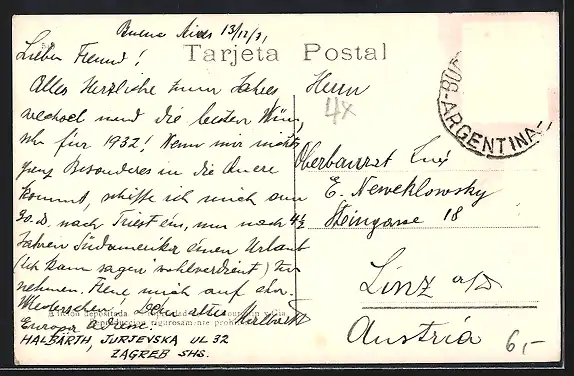 Buenos Aires 13/12/31
Lieber Freund!
Tarjeta Postal
Alles Herzliche zum Jahres
wechsel und die besten Wün
sche für 1932! Wenn mir nichts
ganz Besonderes in die Quere
kommt, schiffe ich mich am
30. d. nach Triest ein, um nach 4½
Jahren Südamerika einen Urlaub
(ich kann sagen wohlverdient) zu
nehmen. Freue mich auf ein
Wiedersehen! Dein alter Halbärth
Europa Adresse:
HALBÄRTH, JURJEVSKA UL 32
ZAGREB SHS.
Herrn
4x
Oberbaurat Ing
E. Neweklowsky
Steingasse 18
Linz a/D
Austria
6,-
BU
ARGENTINA
rigurosamente prohibida